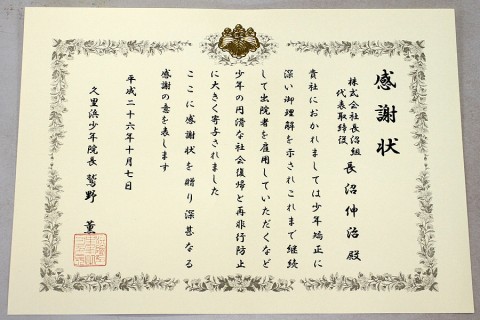 感謝状
株式会社長沼組
代表取締役 長沼伸治殿
貴社におかれましては少年矯正に
深い御理解を示されこれまで継続
して出院者を雇用していただくなど
少年の円滑な社会復帰と再非行防止
に大きく寄与されました
ここに感謝状を贈り深甚なる
感謝の意を表します
平成二十六年十月七日
久里浜少年院長 鷲野薫